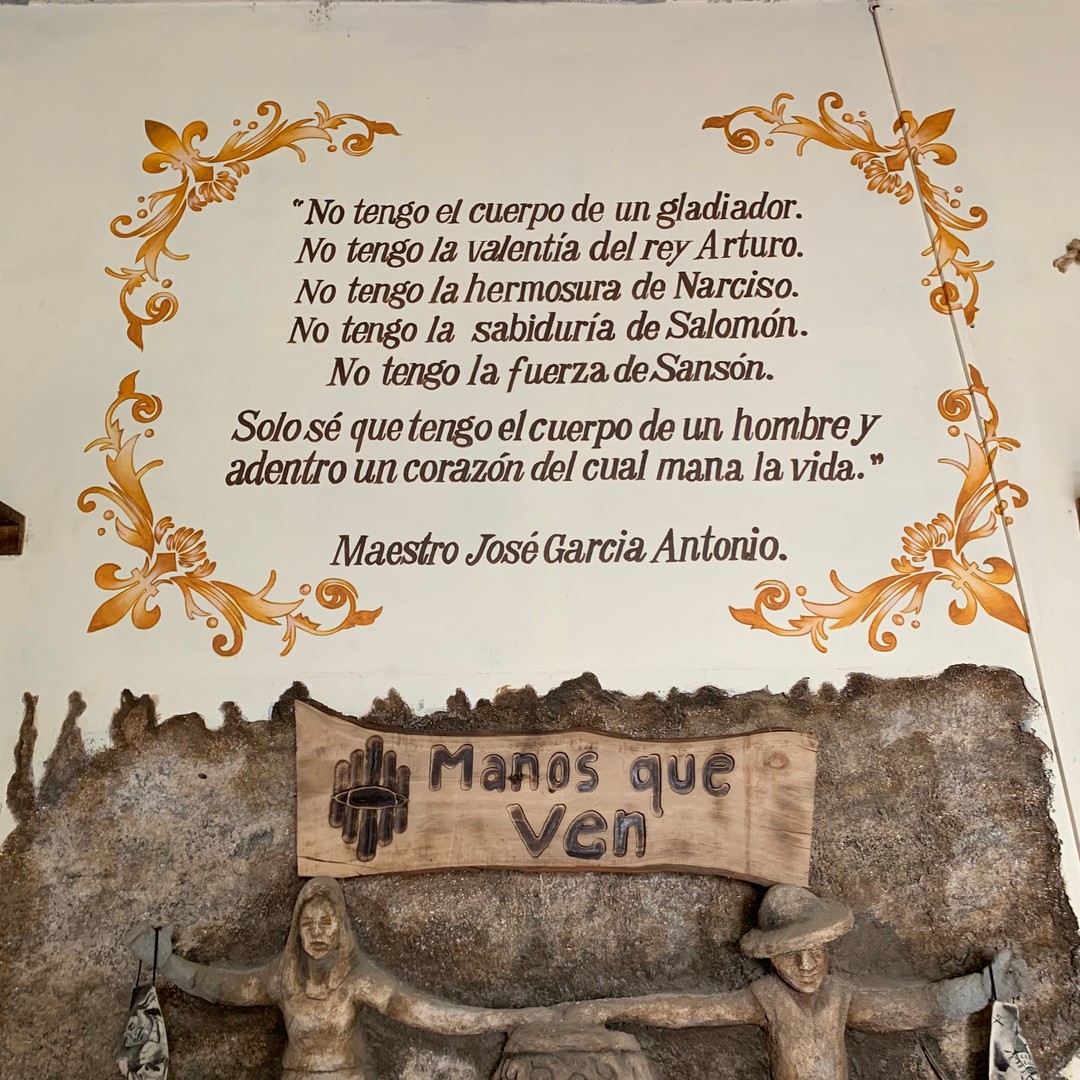 “No tengo el cuerpo de un gladiador.
No tengo la valentía del rey Arturo.
No tengo la hermosura de Narciso.
No tengo la sabiduría de Salomón.
No tengo la fuerza de Sansón.
Solo sé que tengo el cuerpo de un hombre y
adentro un corazón del cual mana la vida.”
Maestro José Garcia Antonio.
Manos que
Ven